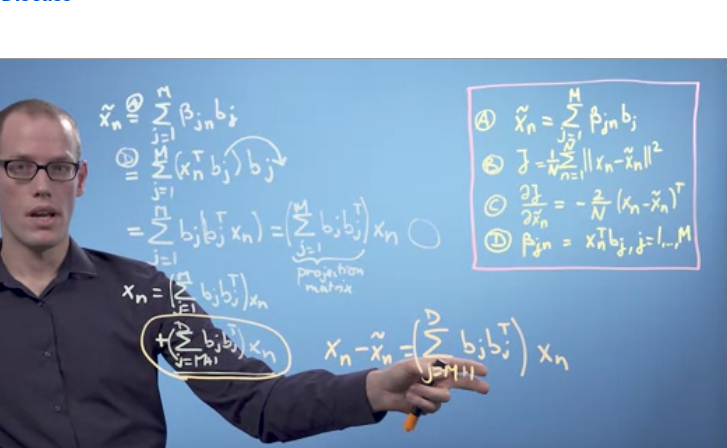 x̃ₙ (A)= Σ_{j=1}^{M} βⱼₙ bⱼ
(D)= Σ_{j=1}^{M} (xₙᵀ bⱼ) bⱼ
= Σ_{j=1}^{M} bⱼ(bⱼᵀ xₙ) = (Σ_{j=1}^{M} bⱼ bⱼᵀ) xₙ
projection
matrix
xₙ = (Σ_{j=1}^{M} bⱼ bⱼᵀ) xₙ
+ (Σ_{j=M+1}^{D} bⱼ bⱼᵀ) xₙ
xₙ - x̃ₙ = (Σ_{j=M+1}^{D} bⱼ bⱼᵀ) xₙ
(A) x̃ₙ = Σ_{j=1}^{M} βⱼₙ bⱼ
(B) J = 1/N Σ_{n=1}^{N} ||xₙ - x̃ₙ||²
(C) ∂J/∂x̃ₙ = - 2/N (xₙ - x̃ₙ)ᵀ
(D) βⱼₙ = xₙᵀ bⱼ, j=1,...,M